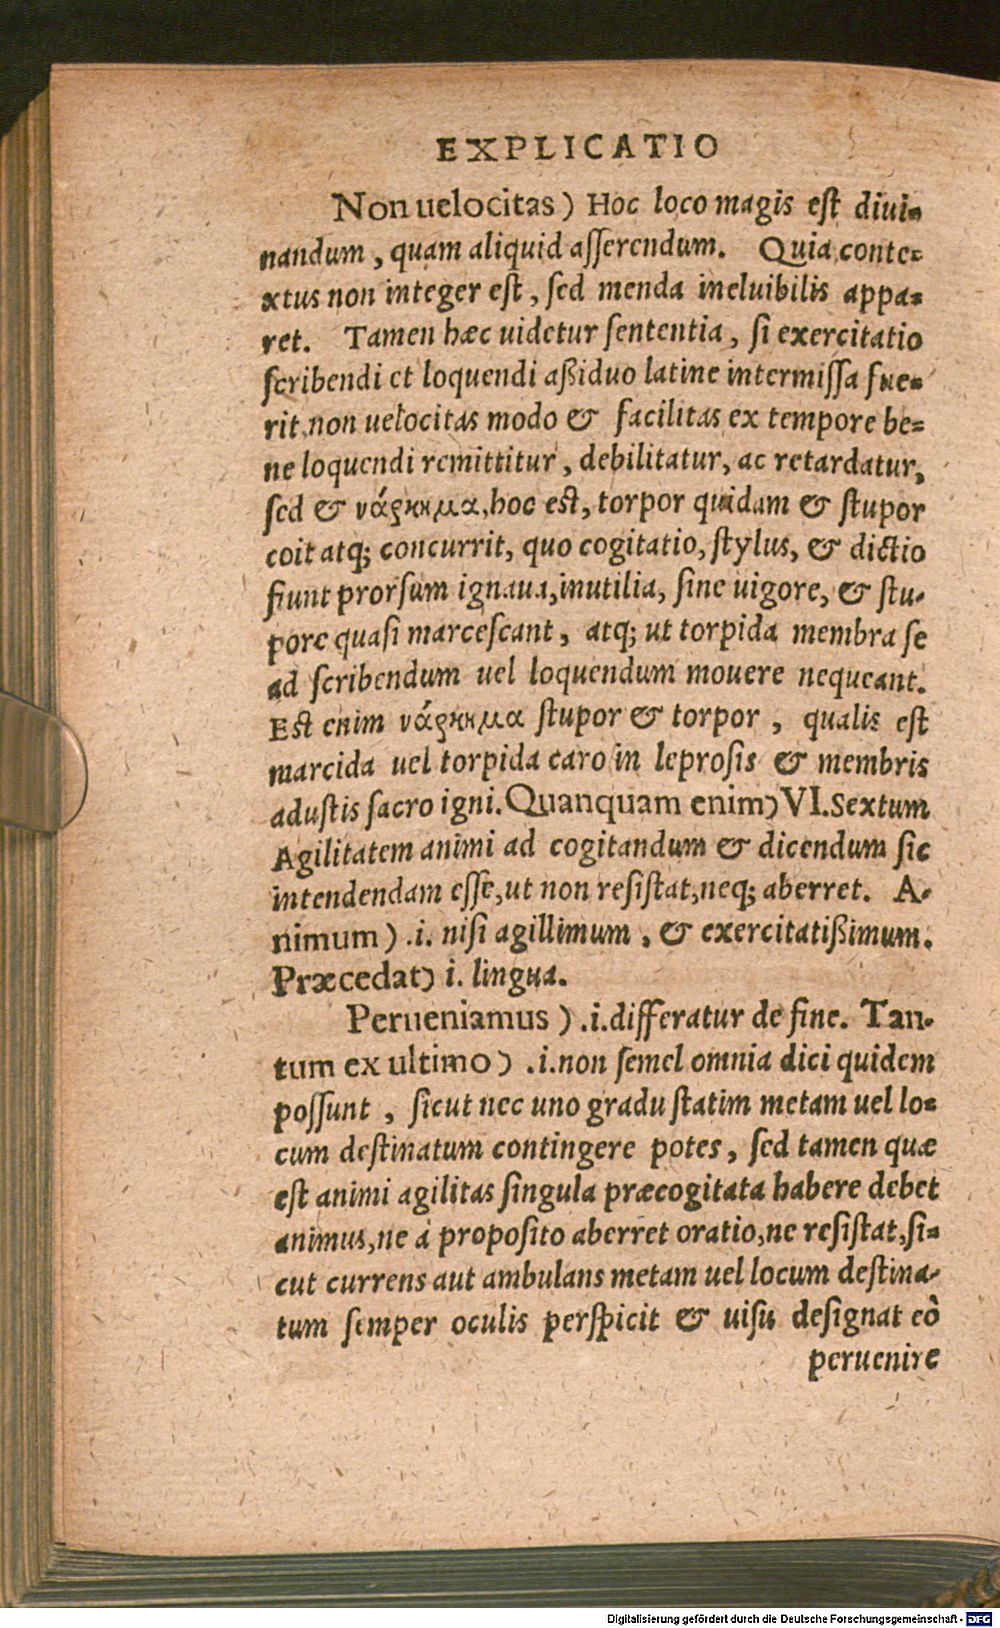 EXPLICATIO
Non uelocitas) Hoc loco magis eſt diui-
nandum, quam aliquid aſſerendum. Quia conte-
xtus non integer eſt, ſed menda ineluibilis appa-
ret. Tamen hæc uidetur ſententia, ſi exercitatio
ſcribendi et loquendi aßiduo latine intermiſſa fue-
rit, non uelocitas modo & facilitas ex tempore be-
ne loquendi remittitur, debilitatur, ac retardatur,
ſed & νάρκημα, hoc eſt, torpor quidam & ſtupor
coit atq; concurrit, quo cogitatio, ſtylus, & dictio
fiunt prorſum ignaua, inutilia, ſine uigore, & ſtu-
pore quaſi marceſcant, atq; ut torpida membra ſe
ad ſcribendum uel loquendum mouere nequeant.
Eſt enim νάρκημα ſtupor & torpor, qualis eſt
marcida uel torpida caro in leproſis & membris
aduſtis ſacro igni. Quanquam enim) VI. Sextum
Agilitatem animi ad cogitandum & dicendum ſic
intendendam eſſe, ut non reſiſtat, neq; aberret. A-
nimum) .i. niſi agillimum, & exercitatißimum.
Præcedat) i. lingua.
Perueniamus) .i. differatur de fine. Tan-
tum ex ultimo) .i. non ſemel omnia dici quidem
poſſunt, ſicut nec uno gradu ſtatim metam uel lo-
cum deſtinatum contingere potes, ſed tamen quæ
eſt animi agilitas ſingula præcogitata habere debet
animus, ne à propoſito aberret oratio, ne reſiſtat, ſi-
cut currens aut ambulans metam uel locum deſtina-
tum ſemper oculis perſpicit & uiſu deſignat eò
peruenire
Digitalisierung gefördert durch die Deutsche Forschungsgemeinschaft - DFG